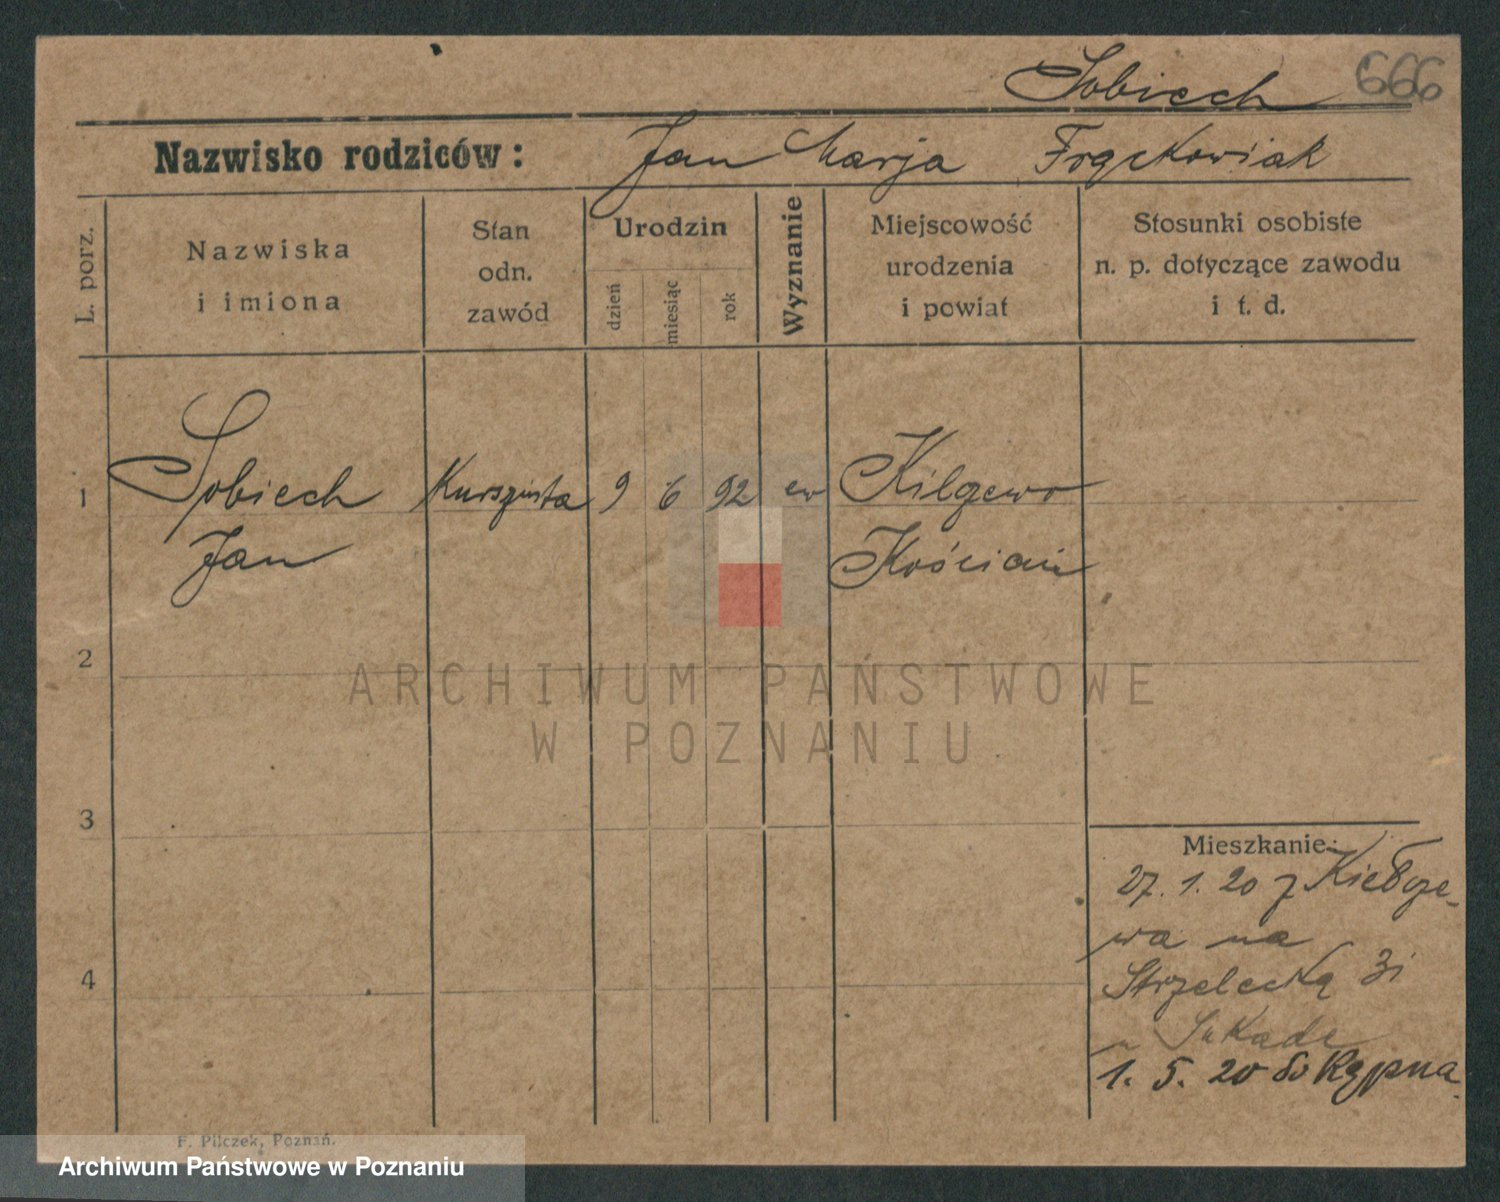 Sobiech 666
Nazwisko rodziców: Jan Marja Frąckowiak
L. porz.
Nazwiska
i imiona
Stan
odn.
zawód
Urodzin
dzień
miesiąc
rok
Wyznanie
Miejscowość
urodzenia
i powiat
Stosunki osobiste
n. p. dotyczące zawodu
i t. d.
1 Sobiech Kurszysta 9 6 92 ew Kilgewo
Jan Kościan
2
3
4
Mieszkanie:
27. 1. 20 z Kiełcze-
wa na
Strzelecką 31
u
1. 5. 20 do Rypna
F. Pilczek, Poznań.
ARCHIWUM PAŃSTWOWE
W POZNANIU
Archiwum Państwowe w Poznaniu